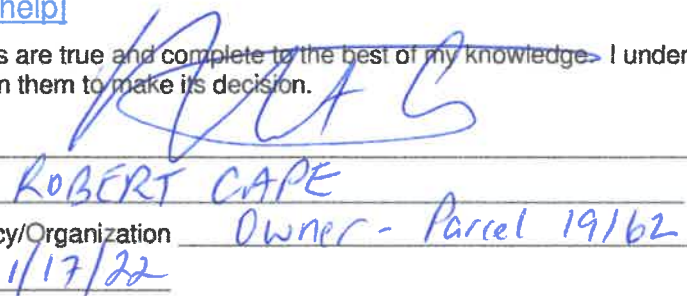 help]
s are true and complete to the best of my knowledge. I under
n them to make its decision.
ROBERT CAPE
cy/Organization Owner - Parcel 19/62
1/17/22